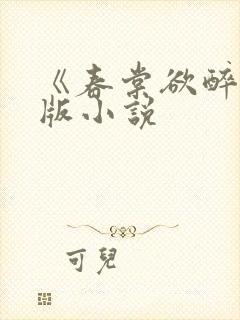 《春棠欲醉
版小说
可兒